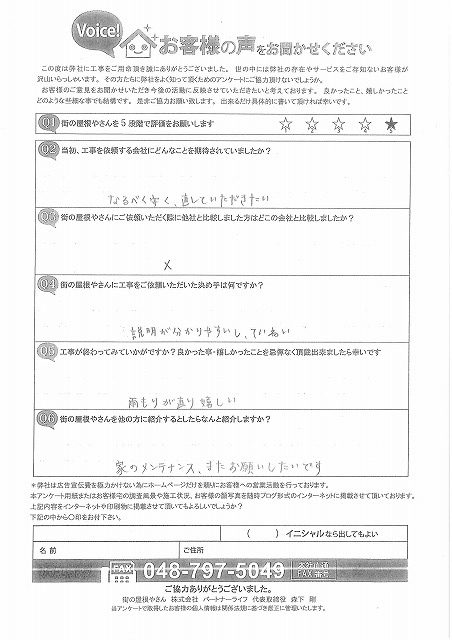 Voice!
お客様の声をお聞かせください
この度は弊社に工事をご用命頂き誠にありがとうございます。世の中には弊社の存在やサービスをご存知ないお客様が
沢山いらっしゃいます。その方たちに弊社をよく知って頂くためのアンケートにご協力頂けないでしょうか。
お客様のご意見をお聞かせいただき今後の活動に反映させていただきたいと考えております。良かったこと、嬉しかったこと
どのような些細な事でも結構です。是非ご協力お願い致します。出来るだけ具体的に書いて頂ければ幸いです。
Q1 街の屋根やさんを5段階で評価をお願いします ☆ ☆ ☆ ☆ ★
Q2 当初、工事を依頼する会社にどんなことを期待されていましたか?
なるべく安く、直していただきたい
Q3 街の屋根やさんにご依頼いただく際に他社と比較しました方はどこの会社と比較しましたか?
×
Q4 街の屋根やさんに工事をご依頼いただいた決め手は何ですか?
説明が分かりやすいし、ていねい
Q5 工事が終わってみていかがですか?良かった事・嬉しかったことを忌憚なく頂戴出来ましたら幸いです
雨もりが直り嬉しい
Q6 街の屋根やさんを他の方に紹介するとしたらなんと紹介しますか?
家のメンテナンス、またお願いしたいです
*弊社は広告宣伝費を極力かけない為にホームページだけを頼りにお客様への営業活動を行っております。
本アンケート用紙またはお客様宅の調査風景や施工状況、お客様の顔写真を随時ブログ形式のインターネットに掲載させて頂いております。
上記内容をインターネットや印刷物に掲載させて頂いてもよろしいでしょうか?
下記の中から〇印をお付下さい。
( ) イニシャルなら出してもよい
名前 ご住所
FAX 048-797-5049 本社直通 FAX番号
ご協力ありがとうございました。
街の屋根やさん 株式会社 パートナーライフ 代表取締役 森下 剛
当アンケートで取得したお客様の個人情報は関係法規に基づき厳正に管理いたします。